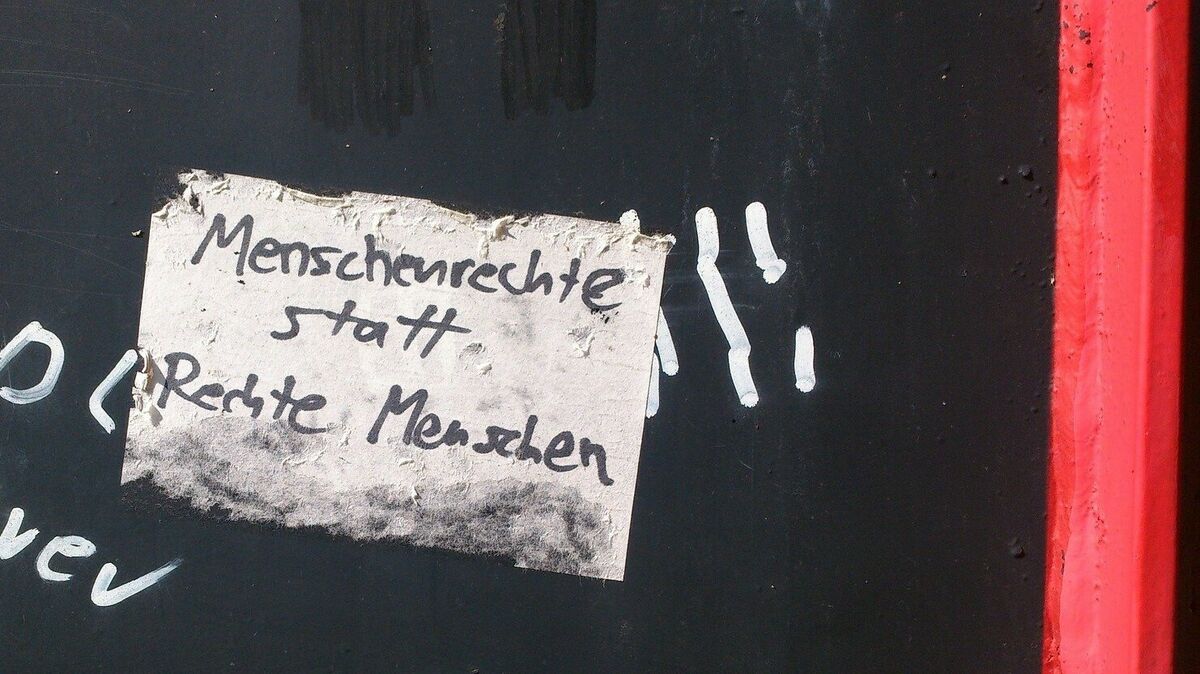 Menschenrechte
statt
Rechte Menschen